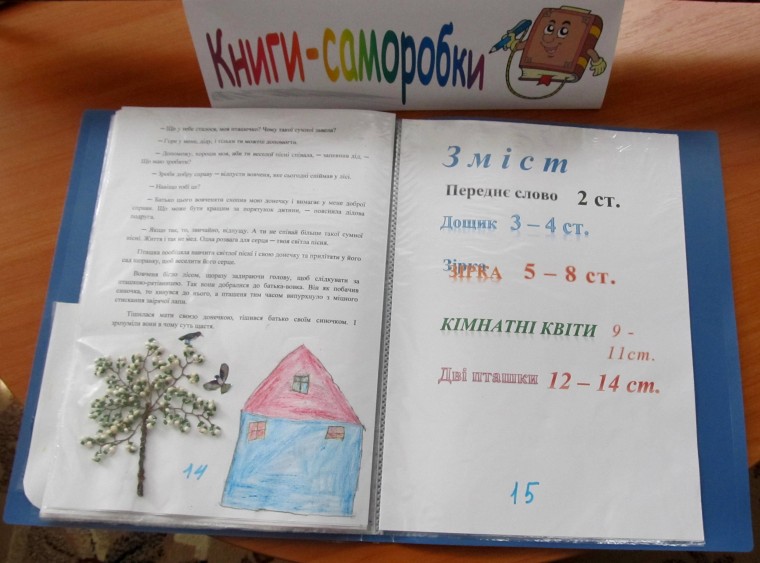 Книги-саморобки
— Ще у тебе сталося, моя пташечко? Чому такої сумної завела?
— Горе у мене, діду, і тільки ти можеш допомогти.
— Допоможу, чорною, аби ти веселої пісні співала, — запевнив дід, —
Що маю зробити?
— Зроби добру справу — відпусти вовченя, яке сьогодні спіймав у лісі.
— Навіщо тобі це?
— Батько цього вовченяти схопив мою донечку і вимагає у мене доброї
справи. Що може бути кращим за порятунок дитини, — пояснила дідова
подруга.
— Якщо так, то, звичайно, відпущу. А ти не співай більше такої сумної
пісні. Життя і так не мед. Одна розвага для серця — твоя світла пісня.
Пташка пообіцяла навчити світлої пісні і свою донечку та прилітати у його
сад щоранку, щоб веселити його серце.
Вовченя бігло лісом, щоразу задираючи голову, щоб слідкувати за
пташкою-рятівницею. Так вони добралися до батька-вовка. Він як побачив
синочка, то кинувся до нього, а пташеня тим часом випурхнуло з міцного
стискання звірячої лапи.
Тішилася мати своєю донечкою, тішився батько своїм синочком. І
зрозуміли вони в чому суть щастя.
14
Зміст
Переднє слово 2 ст.
Дощик 3 – 4 ст.
Зірка
ЗІРКА 5 – 8 ст.
КІМНАТНІ КВІТИ 9 -
11ст.
Дві пташки 12 – 14 ст.
15